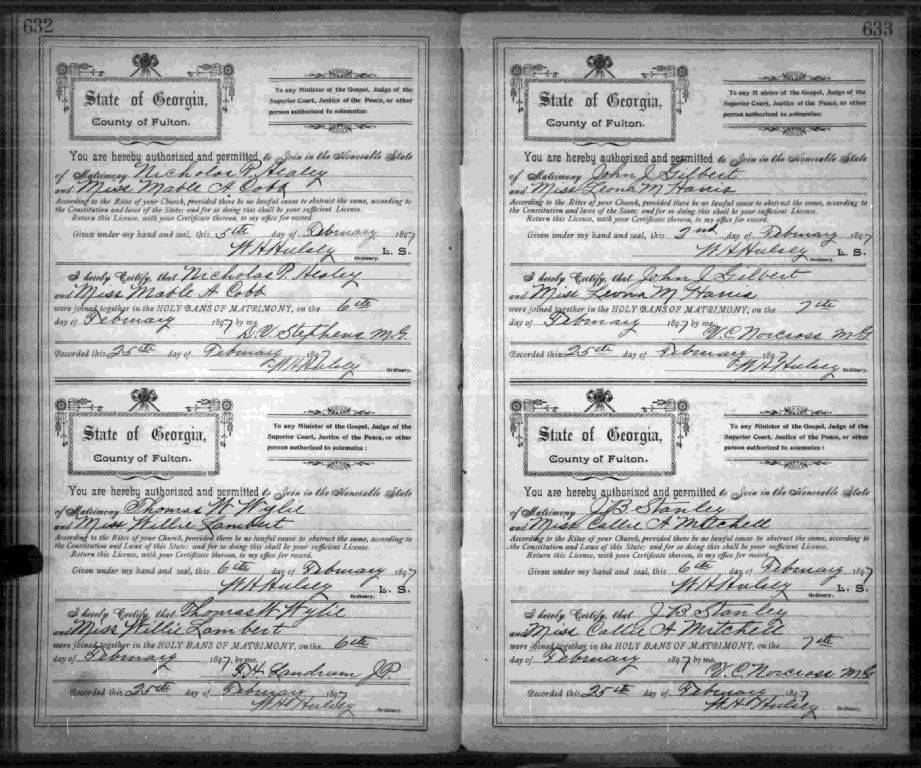 632
State of Georgia,
County of Fulton.
To any Minister of the Gospel, Judge of the
Superior Court, Justice of the Peace, or other
person authorized to solemnize:
You are hereby authorized and permitted to Join in the Honorable State
of Matrimony Nicholas P. Healey
and Miss Mable A Cobb
According to the Rites of your Church, provided there be no lawful cause to obstruct the same, according to
the Constitution and laws of the State; and for so doing this shall be your sufficient License.
Return this License, with your Certificate thereon, to my office for record.
Given under my hand and seal, this 5th day of February 1897
W H Hulsey L. S.
Ordinary.
I hereby Certify, that Nicholas P. Healey
and Miss Mable A Cobb
were joined together in the HOLY BANS OF MATRIMONY, on the 6th
day of February 1897 by me,
D. V. Stephens M.G.
Recorded this 25th day of February 1897
W H Hulsey Ordinary.
State of Georgia,
County of Fulton.
To any Minister of the Gospel, Judge of the
Superior Court, Justice of the Peace, or other
person authorized to solemnize:
You are hereby authorized and permitted to Join in the Honorable State
of Matrimony Thomas W Wylie
and Miss Willie Lambert
According to the Rites of your Church, provided there be no lawful cause to obstruct the same, according to
the Constitution and Laws of this State; and for so doing this shall be your sufficient License.
Return this License, with your Certificate thereon, to my office for record.
Given under my hand and seal, this 6th day of February 1897
W H Hulsey L. S.
Ordinary.
I hereby Certify, that Thomas W Wylie
and Miss Willie Lambert
were joined together in the HOLY BANS OF MATRIMONY, on the 6th
day of February 1897 by me,
Landrum J.P.
Recorded this 25th day of February 1897
W H Hulsey
Ordinary.
633
State of Georgia,
County of Fulton.
To any Minister of the Gospel, Judge of the
Superior Court, Justice of the Peace, or other
person authorized to solemnize:
You are hereby authorized and permitted to Join in the Honorable State
of Matrimony John J Gilbert
and Miss Leona M Harris
According to the Rites of your Church, provided there be no lawful cause to obstruct the same, according to
the Constitution and laws of the State; and for so doing this shall be your sufficient License.
Return this License, with your Certificate thereon, to my office for record.
Given under my hand and seal, this 2nd day of February 1897
W H Hulsey L. S.
Ordinary.
I hereby Certify, that John J Gilbert
and Miss Leona M Harris
were joined together in the HOLY BANS OF MATRIMONY, on the 7th
day of February 1897 by me,
V. C. Norcross M G
Recorded this 25th day of February 1897
W H Hulsey Ordinary.
State of Georgia,
County of Fulton.
To any Minister of the Gospel, Judge of the
Superior Court, Justice of the Peace, or other
person authorized to solemnize:
You are hereby authorized and permitted to Join in the Honorable State
of Matrimony J B Stanley
and Miss Callie A Mitchell
According to the Rites of your Church, provided there be no lawful cause to obstruct the same, according to
the Constitution and Laws of this State; and for so doing this shall be your sufficient License.
Return this License, with your Certificate thereon, to my office for record.
Given under my hand and seal, this 6th day of February 1897
W H Hulsey L. S.
Ordinary.
I hereby Certify, that J B Stanley
and Miss Callie A Mitchell
were joined together in the HOLY BANS OF MATRIMONY, on the 7th
day of February 1897 by me,
V. C. Norcross M G
Recorded this 25th day of February 1897
W H Hulsey
Ordinary.